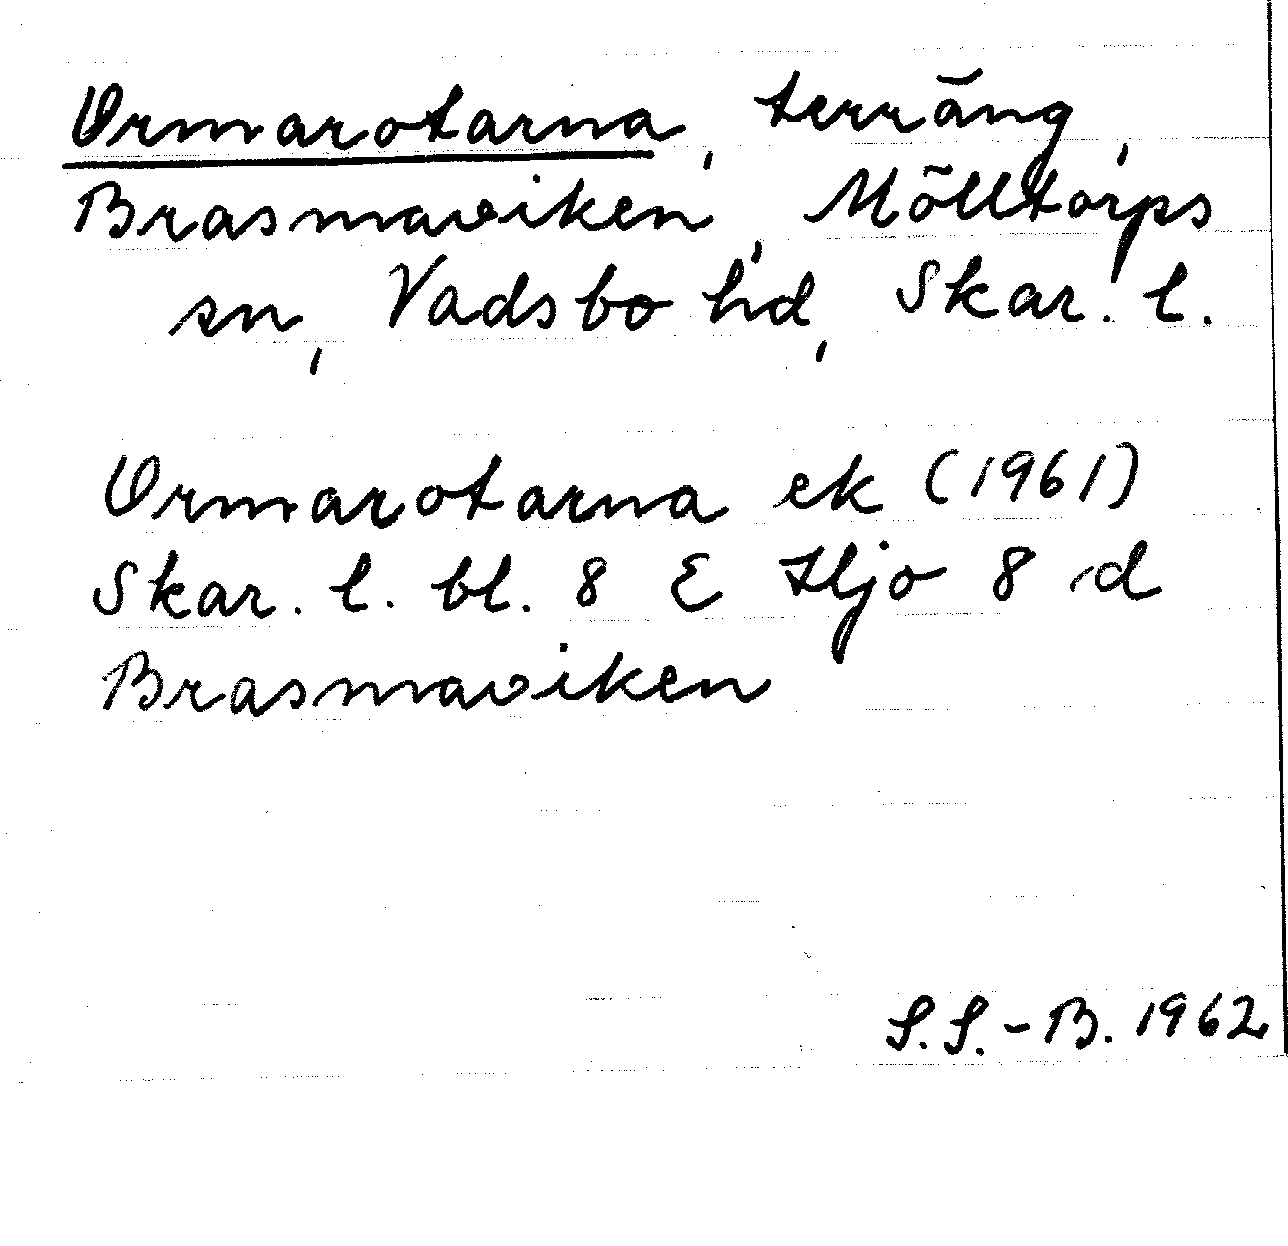 Ormarotarna, terräng,
Brasmaviken, Mölltorps
sn, Vadsbo hd, Skar. l.
Ormarotarna ek (1961)
Skar. l. bl. 8 E Hjo 8 d
Brasmaviken
S.S.-B. 1962